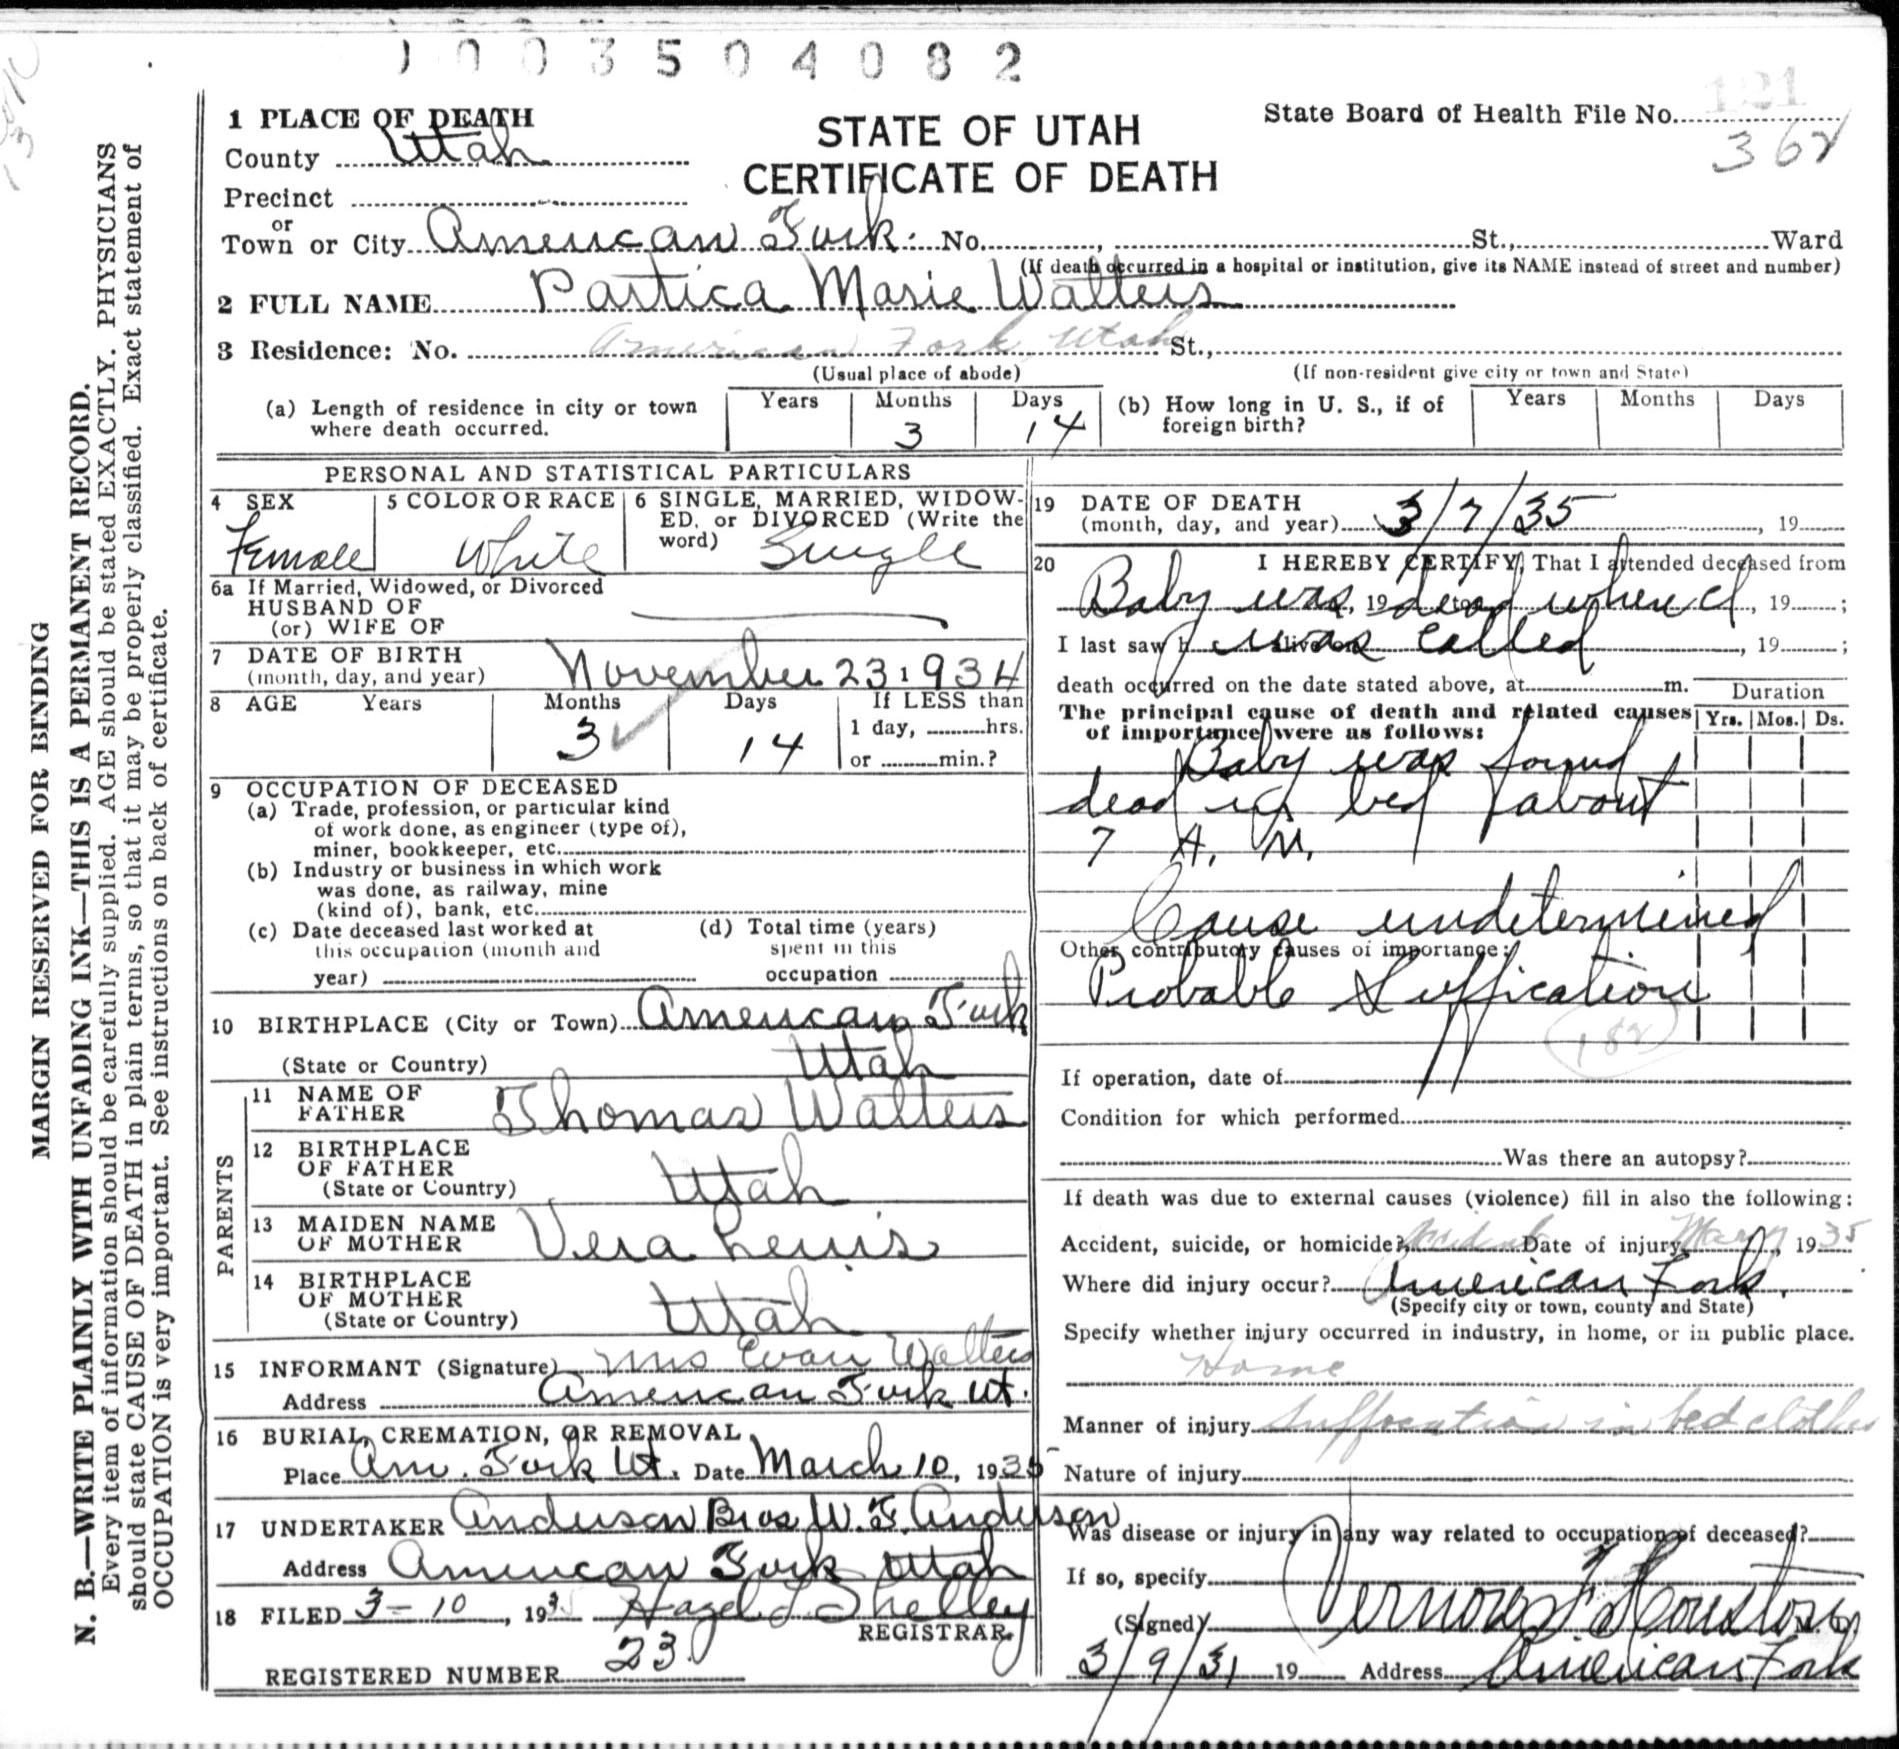 1003504082
1 PLACE OF DEATH
STATE OF UTAH
State Board of Health File No. 121
County Utah
CERTIFICATE OF DEATH
362
Precinct
or
Town or City American Fork. No. , St., Ward
(If death occurred in a hospital or institution, give its NAME instead of street and number)
2 FULL NAME Partica Marie Walters
3 Residence: No. American Fork, Utah St.,
(Usual place of abode) (If non-resident give city or town and State)
(a) Length of residence in city or town where death occurred. Years Months 3 Days 14
(b) How long in U. S., if of foreign birth? Years Months Days
PERSONAL AND STATISTICAL PARTICULARS
4 SEX Female
5 COLOR OR RACE White
6 SINGLE, MARRIED, WIDOW-
ED, or DIVORCED (Write the
word) Single
6a If Married, Widowed, or Divorced
HUSBAND OF
(or) WIFE OF
7 DATE OF BIRTH
(month, day, and year) November 23 1934
8 AGE Years Months 3 Days 14 If LESS than
1 day, hrs.
or min.?
9 OCCUPATION OF DECEASED
(a) Trade, profession, or particular kind
of work done, as engineer (type of),
miner, bookkeeper, etc.
(b) Industry or business in which work
was done, as railway, mine
(kind of), bank, etc.
(c) Date deceased last worked at
this occupation (month and
year)
(d) Total time (years)
spent in this
occupation
10 BIRTHPLACE (City or Town) American Fork
(State or Country) Utah
PARENTS
11 NAME OF
FATHER Thomas Walters
12 BIRTHPLACE
OF FATHER
(State or Country) Utah
13 MAIDEN NAME
OF MOTHER Vera Lewis
14 BIRTHPLACE
OF MOTHER
(State or Country) Utah
15 INFORMANT (Signature) Mrs Evan Walters
Address American Fork Ut.
16 BURIAL, CREMATION, OR REMOVAL
Place Am. Fork Ut. Date March 10, 1935
17 UNDERTAKER Anderson Bros W. F. Anderson
Address American Fork Utah
18 FILED 3-10, 1935 Hazel J Shelley
REGISTRAR.
REGISTERED NUMBER 23
19 DATE OF DEATH
(month, day, and year) 3/7/35 , 19
20 I HEREBY CERTIFY, That I attended deceased from
Baby was, 19 dead to when I, 19 ;
I last saw h was alive on called , 19 ;
death occurred on the date stated above, at m.
The principal cause of death and related causes
of importance were as follows:
Duration
Yrs. Mos. Ds.
Baby was found
dead in bed about
7 A. M.
Cause undetermined
Other contributory causes of importance:
Probable Suffication
182
If operation, date of
Condition for which performed
Was there an autopsy?
If death was due to external causes (violence) fill in also the following:
Accident, suicide, or homicide? Accident Date of injury Mar 7, 1935
Where did injury occur? American Fork.
(Specify city or town, county and State)
Specify whether injury occurred in industry, in home, or in public place.
Home
Manner of injury Suffocation in bed clothes
Nature of injury
Was disease or injury in any way related to occupation of deceased?
If so, specify
(Signed) Vernon F Houston M. D.
3/9/31 19 Address American Fork
MARGIN RESERVED FOR BINDING
N. B.—WRITE PLAINLY WITH UNFADING INK—THIS IS A PERMANENT RECORD.
Every item of information should be carefully supplied. AGE should be stated EXACTLY. PHYSICIANS
should state CAUSE OF DEATH in plain terms, so that it may be properly classified. Exact statement of
OCCUPATION is very important. See instructions on back of certificate.